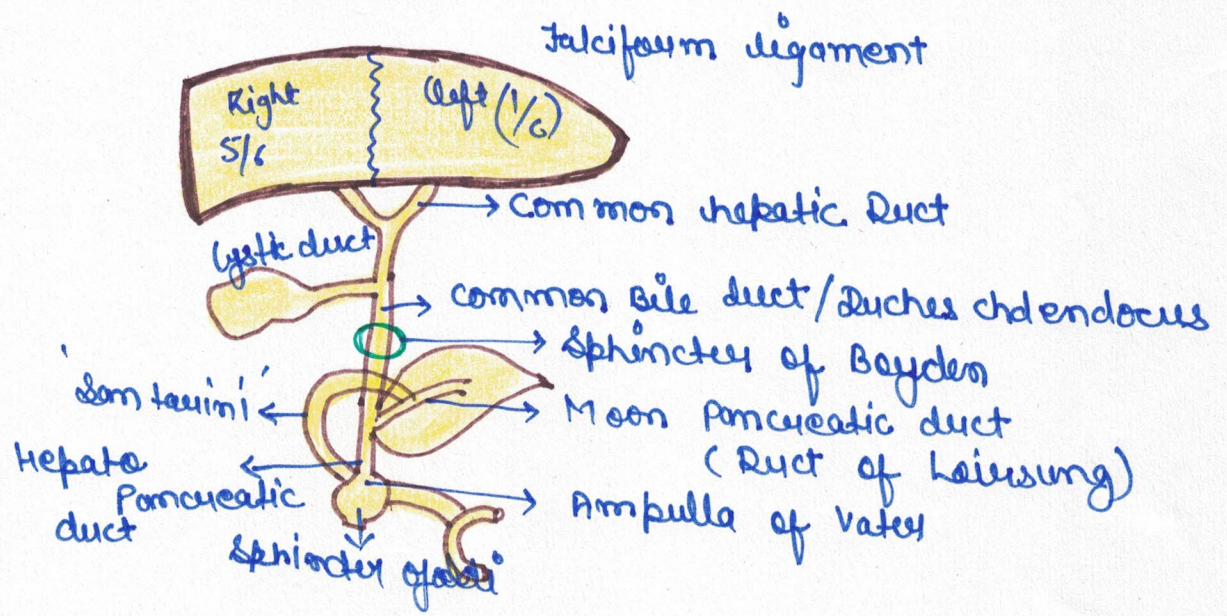 Falciform ligament
Right
5/6
left (1/6)
Common hepatic Duct
Cystic duct
Common Bile duct/Duches chdendocus
Sphincter of Boyden
'Santorini'
Moon Pancreatic duct
(Duct of Wirsung)
Hepato
Pancreatic
duct
Ampulla of Vater
Sphincter of oddi